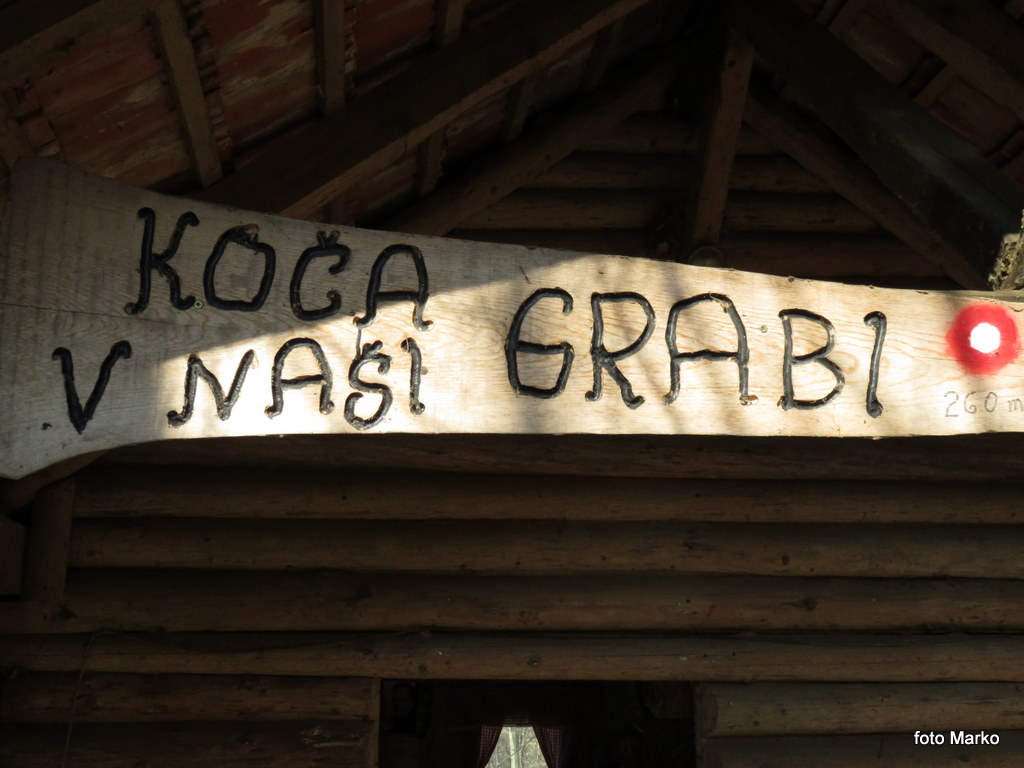 KOČA
V NAŠI GRABI
260 m
foto Marko